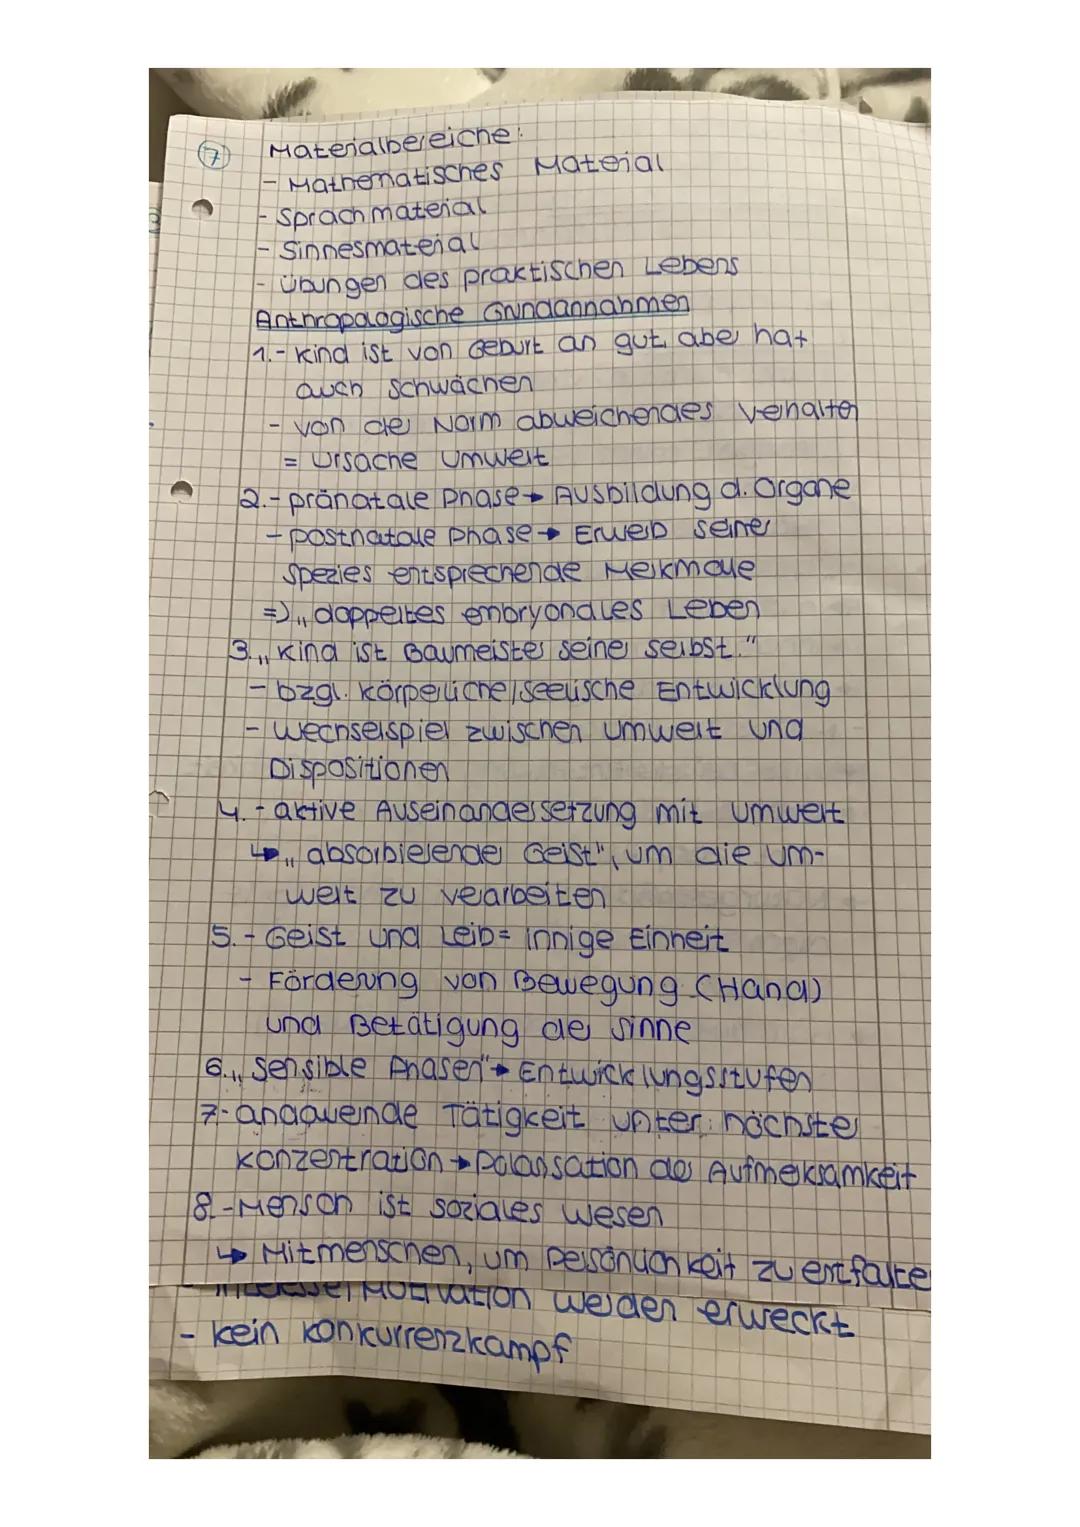 7 Materialbereiche:
- Mathematisches Material
- Sprachmaterial
- Sinnesmaterial
- Übungen des praktischen Lebens
Anthropologische Grundannahmen
1. - Kind ist von Geburt an gut, aber hat
auch Schwächen
- von der Norm abweichendes Verhalten
= Ursache Umwelt
2. - pränatale Phase → Ausbildung d. Organe
- postnatale Phase → Erwerb seiner
Spezies entsprechende Merkmale
=> „doppeltes embryonales Leben
3. „Kind ist Baumeister seiner selbst."
- bzgl. körperliche/seelische Entwicklung
- Wechselspiel zwischen Umwelt und
Dispositionen
4. - aktive Auseinandersetzung mit Umwelt
↳ „absorbierender Geist", um die Um-
welt zu verarbeiten
5. - Geist und Leib = innige Einheit
- Förderung von Bewegung (Hand)
und Betätigung der Sinne
6. „sensible Phasen" → Entwicklungsstufen
7. - andauernde Tätigkeit unter höchster
Konzentration → Polarisation der Aufmerksamkeit
8. - Mensch ist soziales Wesen
↳ Mitmenschen, um Persönlichkeit zu entfalten
Motivation werden erweckt
- kein Konkurrenzkampf